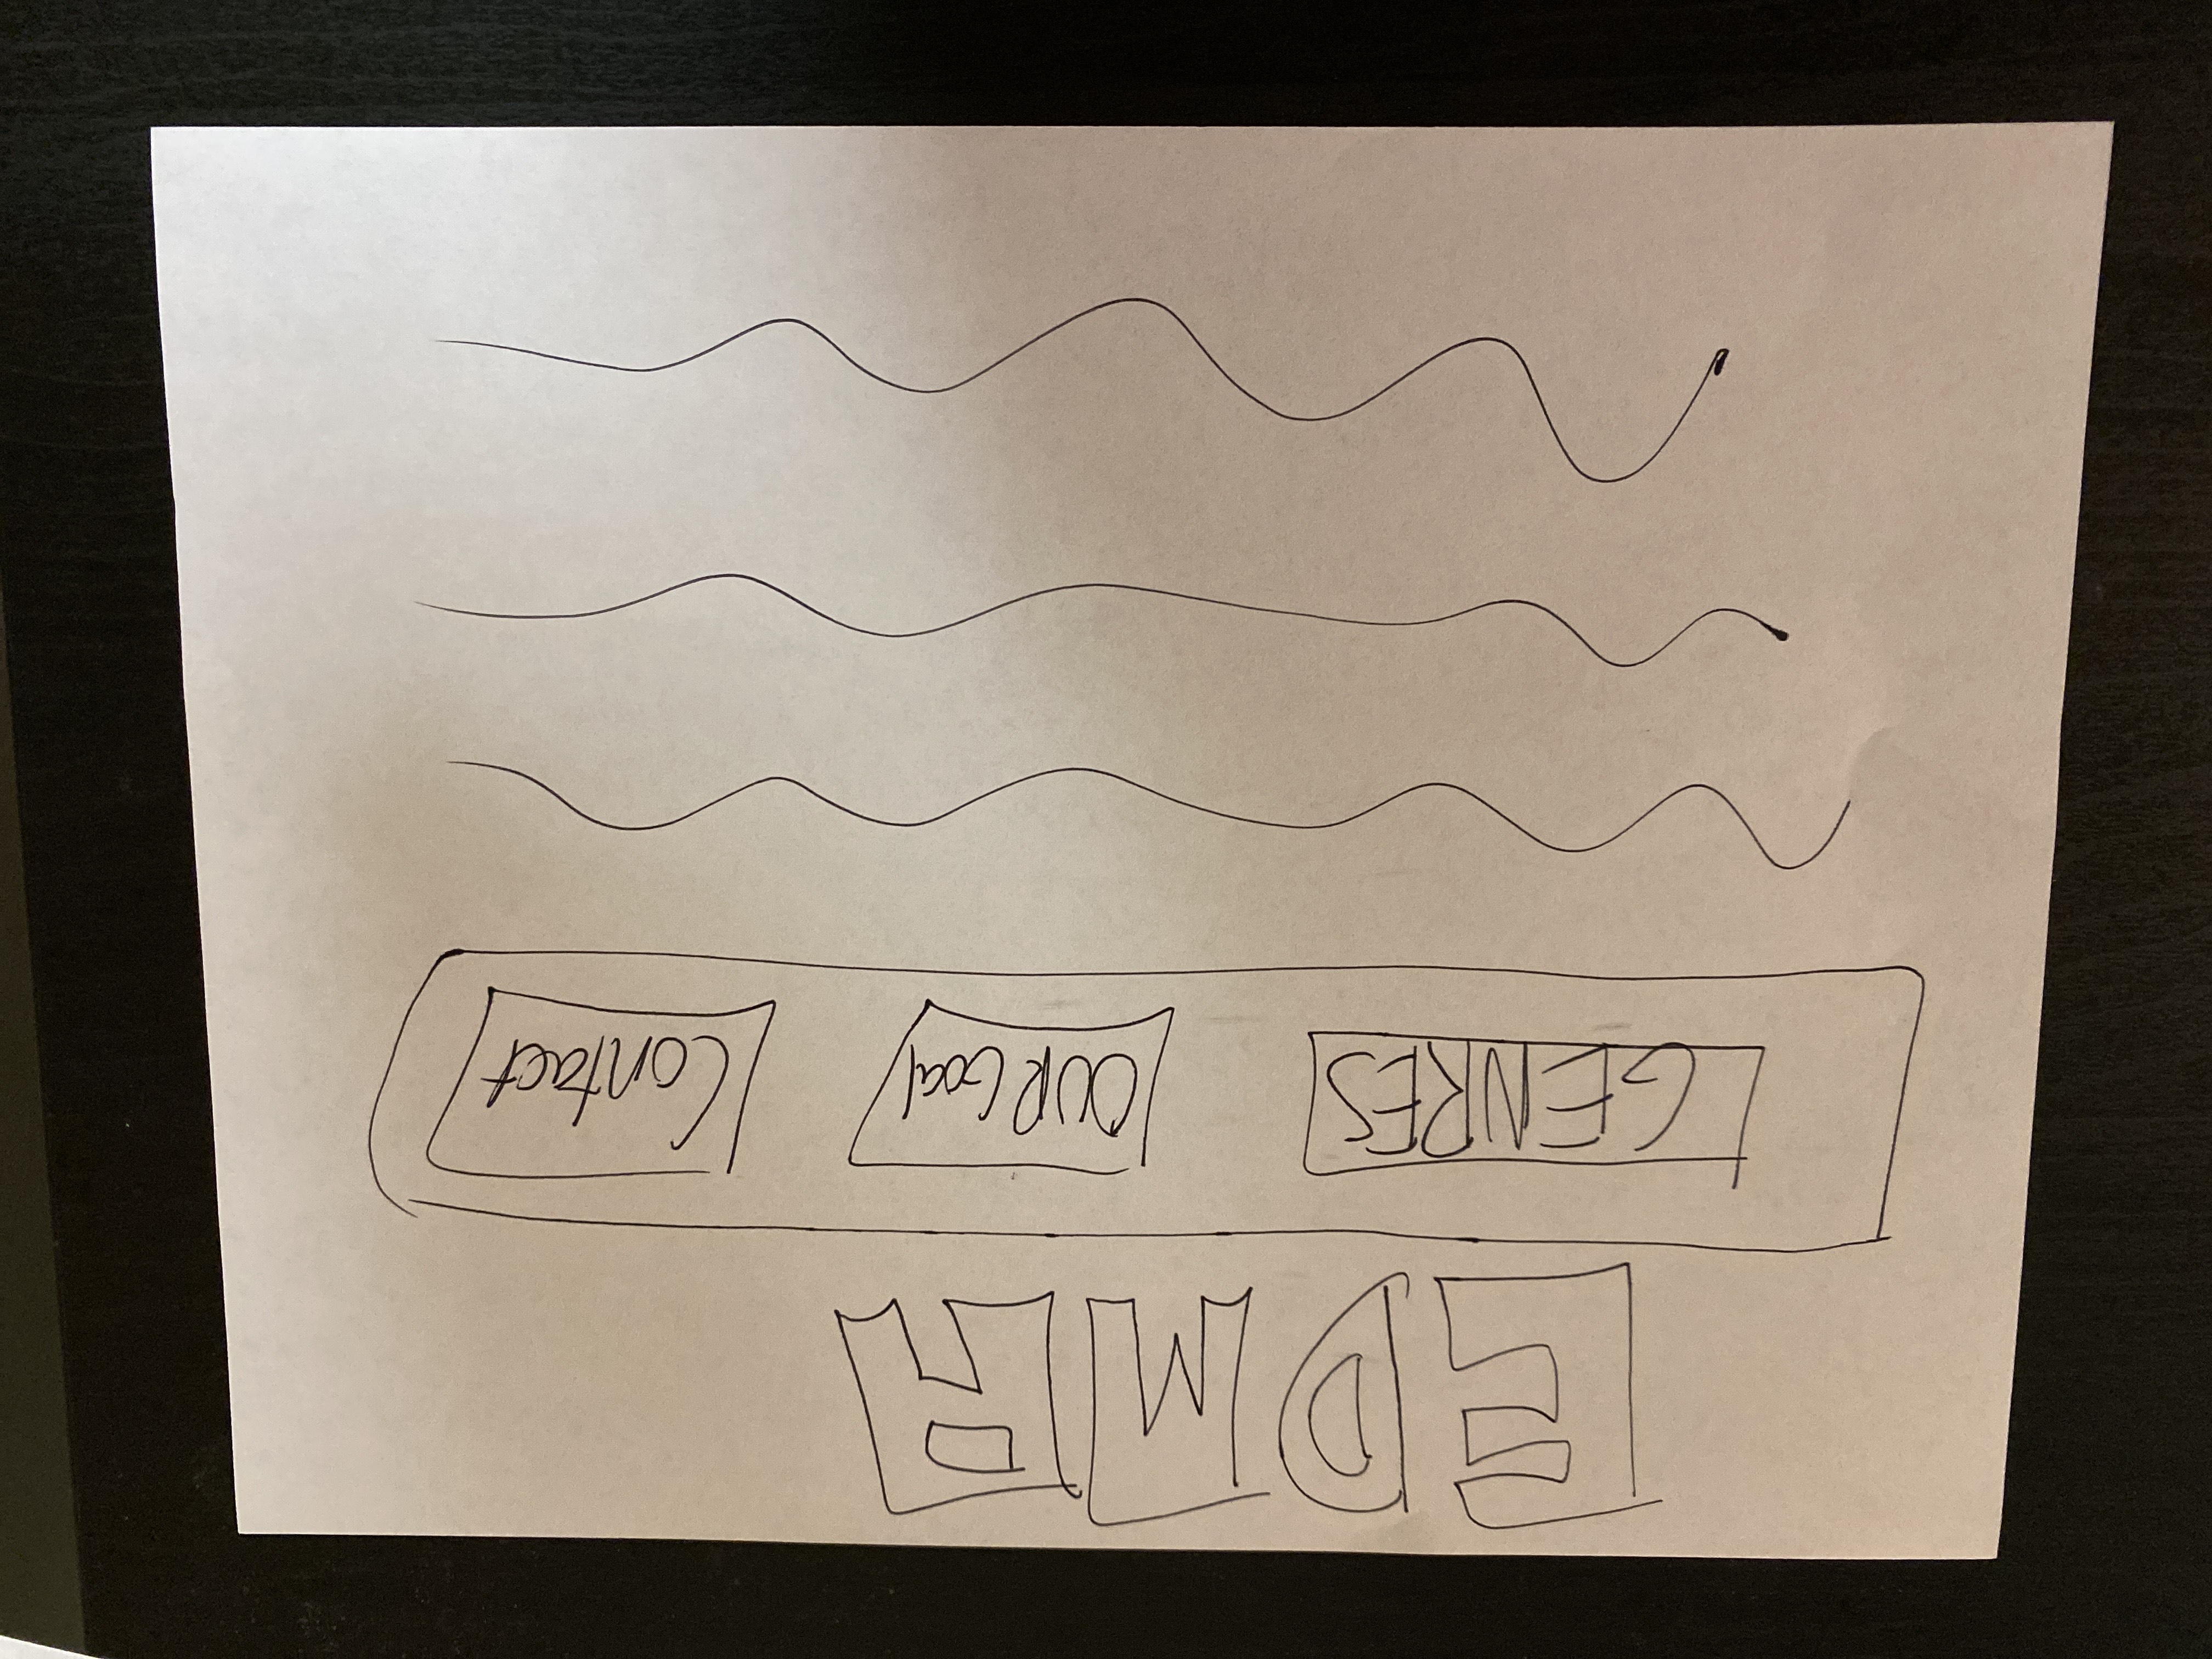 EDMA
GENRES OUR Goal Contact